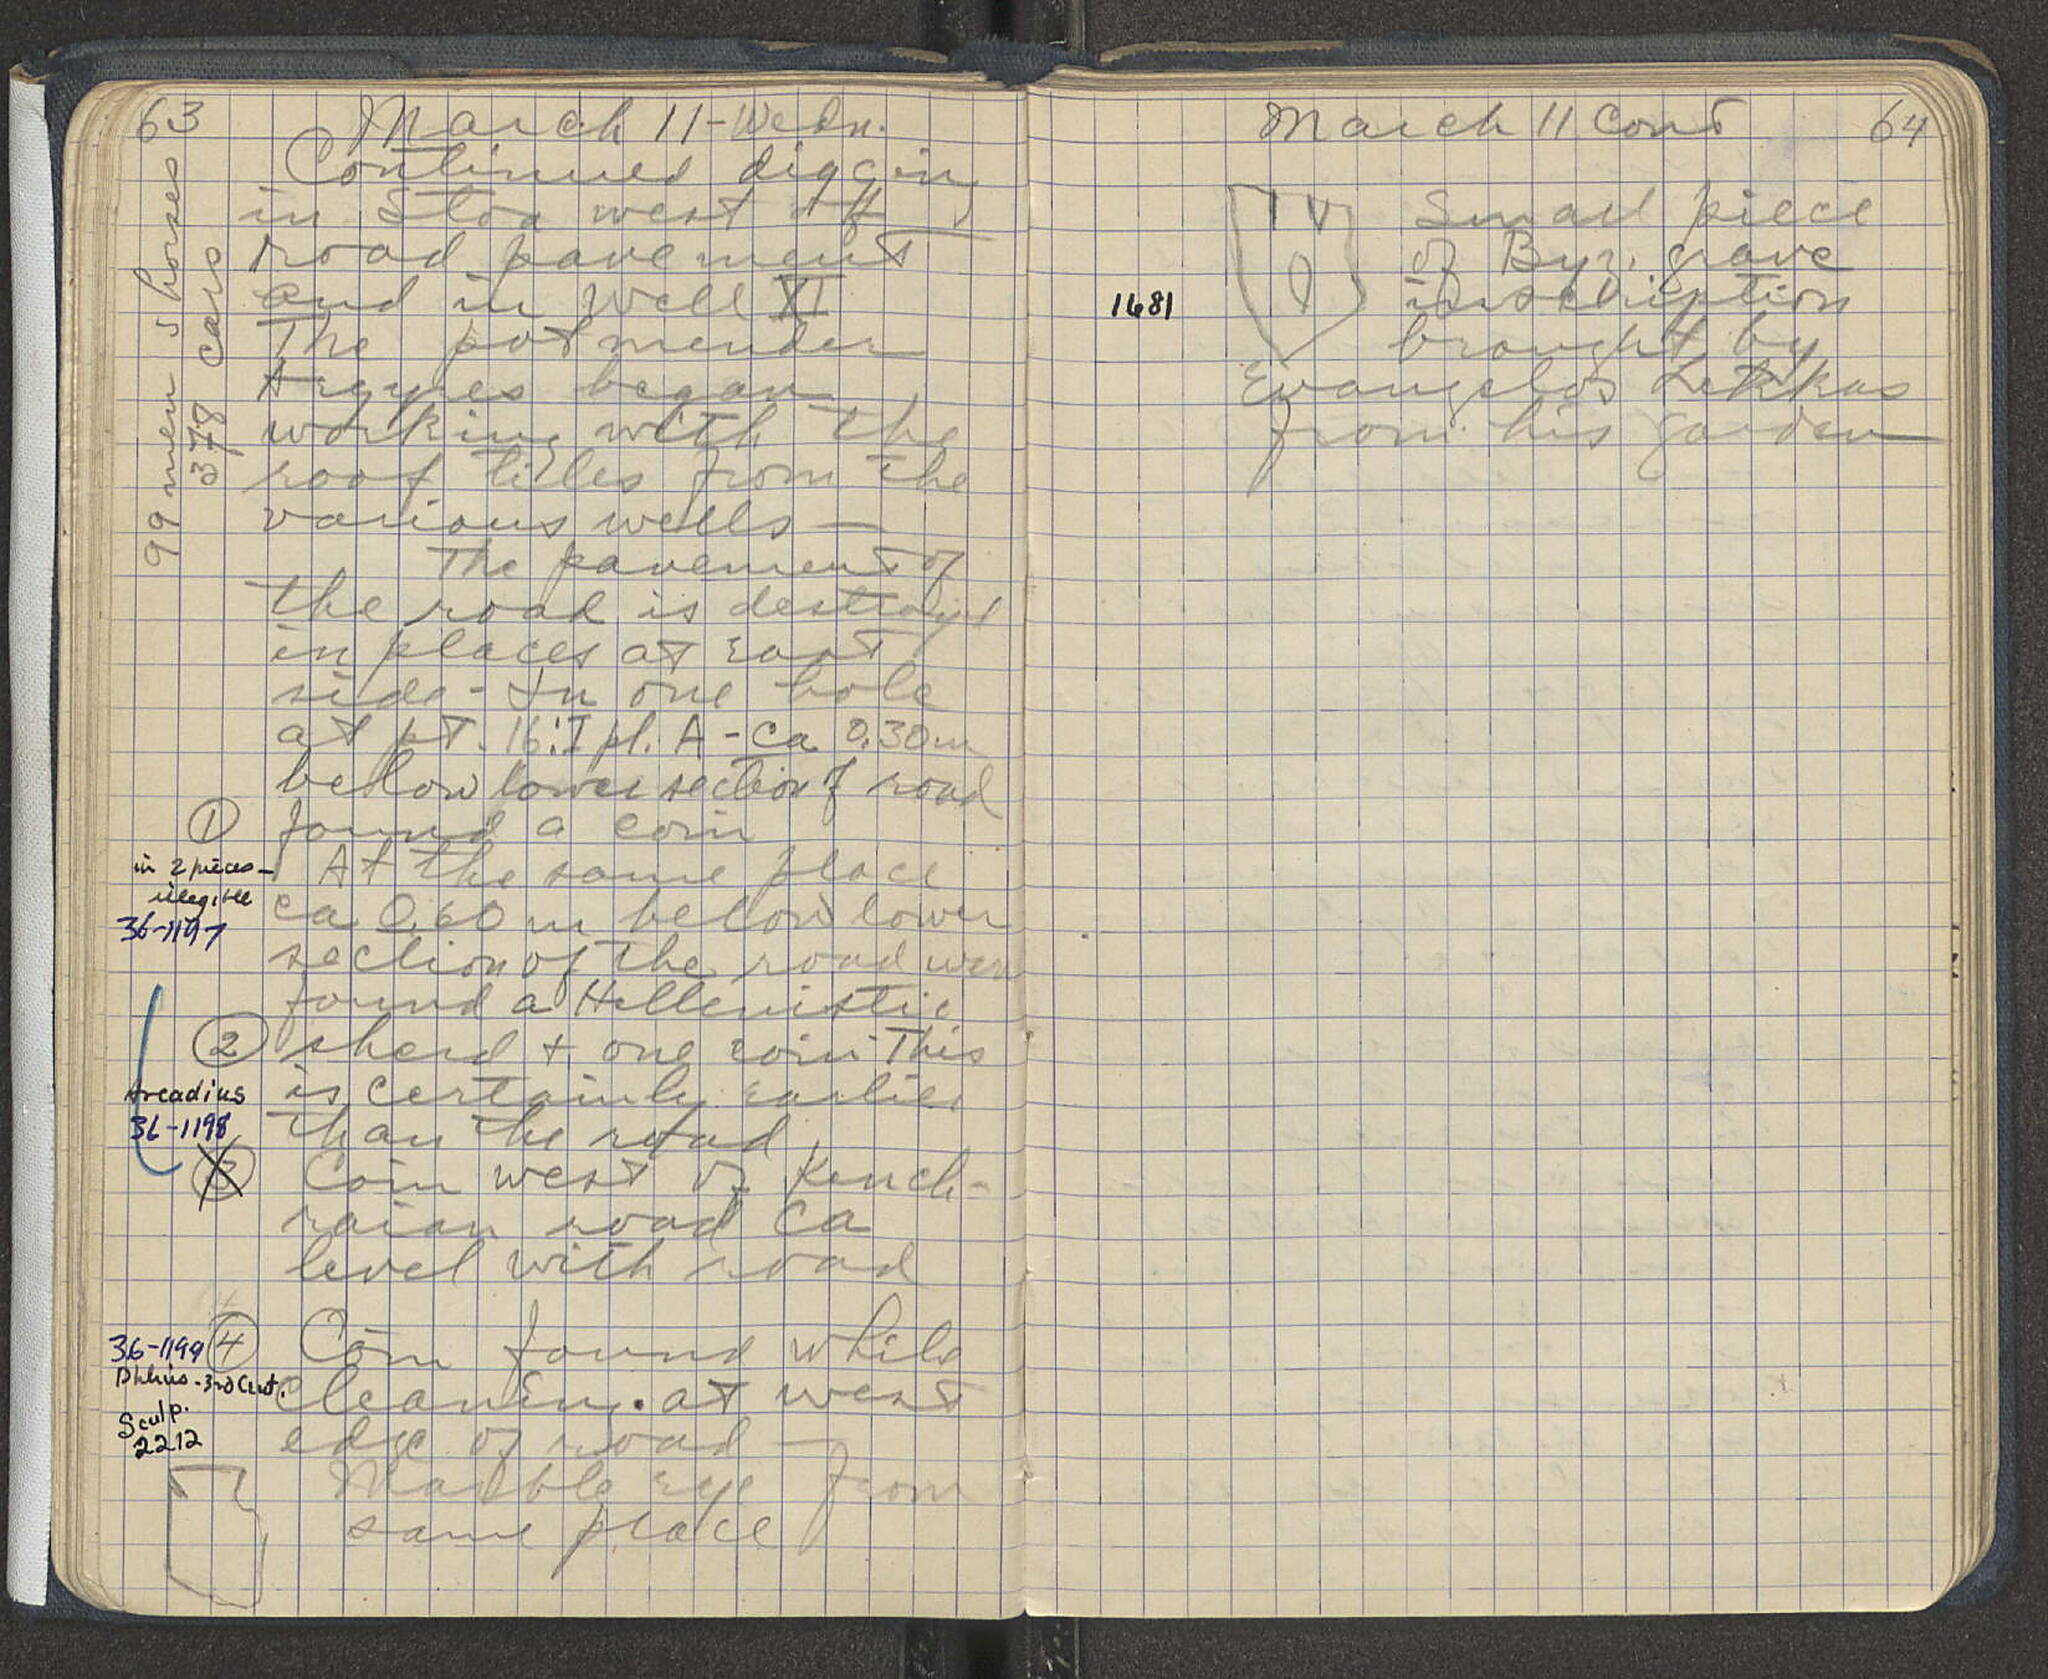 63
March 11 - Wedn.
99 men 5 horses
378 cars
Continued digging
in Stoa west of
road pavement
and in Well XI
The pot mender
Argyres began
working with the
roof tiles from the
various wells —
The pavement of
the road is destroyd
in places at East
side - In one hole
at pt. 16:I pl. A - ca 0.30 m
below lower section of road
① found a coin
in 2 pieces -
illegible
36-1197
At the same place
ca 0.60 m below lower
section of the road were
found a Hellenistic
② sherd + one coin. This
Arcadius
36-1198
is certainly earlier
than the road
③ Coin west of Kench-
raian road ca
level with road
36-1199 ④ Coin found while
Phlius - 3rd Cent.
cleaning at west
edge of road —
Sculp.
2212
Marble Eye from
same place
March 11 Cont
64
1681
Small piece
of Byz. grave
inscription
brought by
Evangelos Lekkas
from his garden